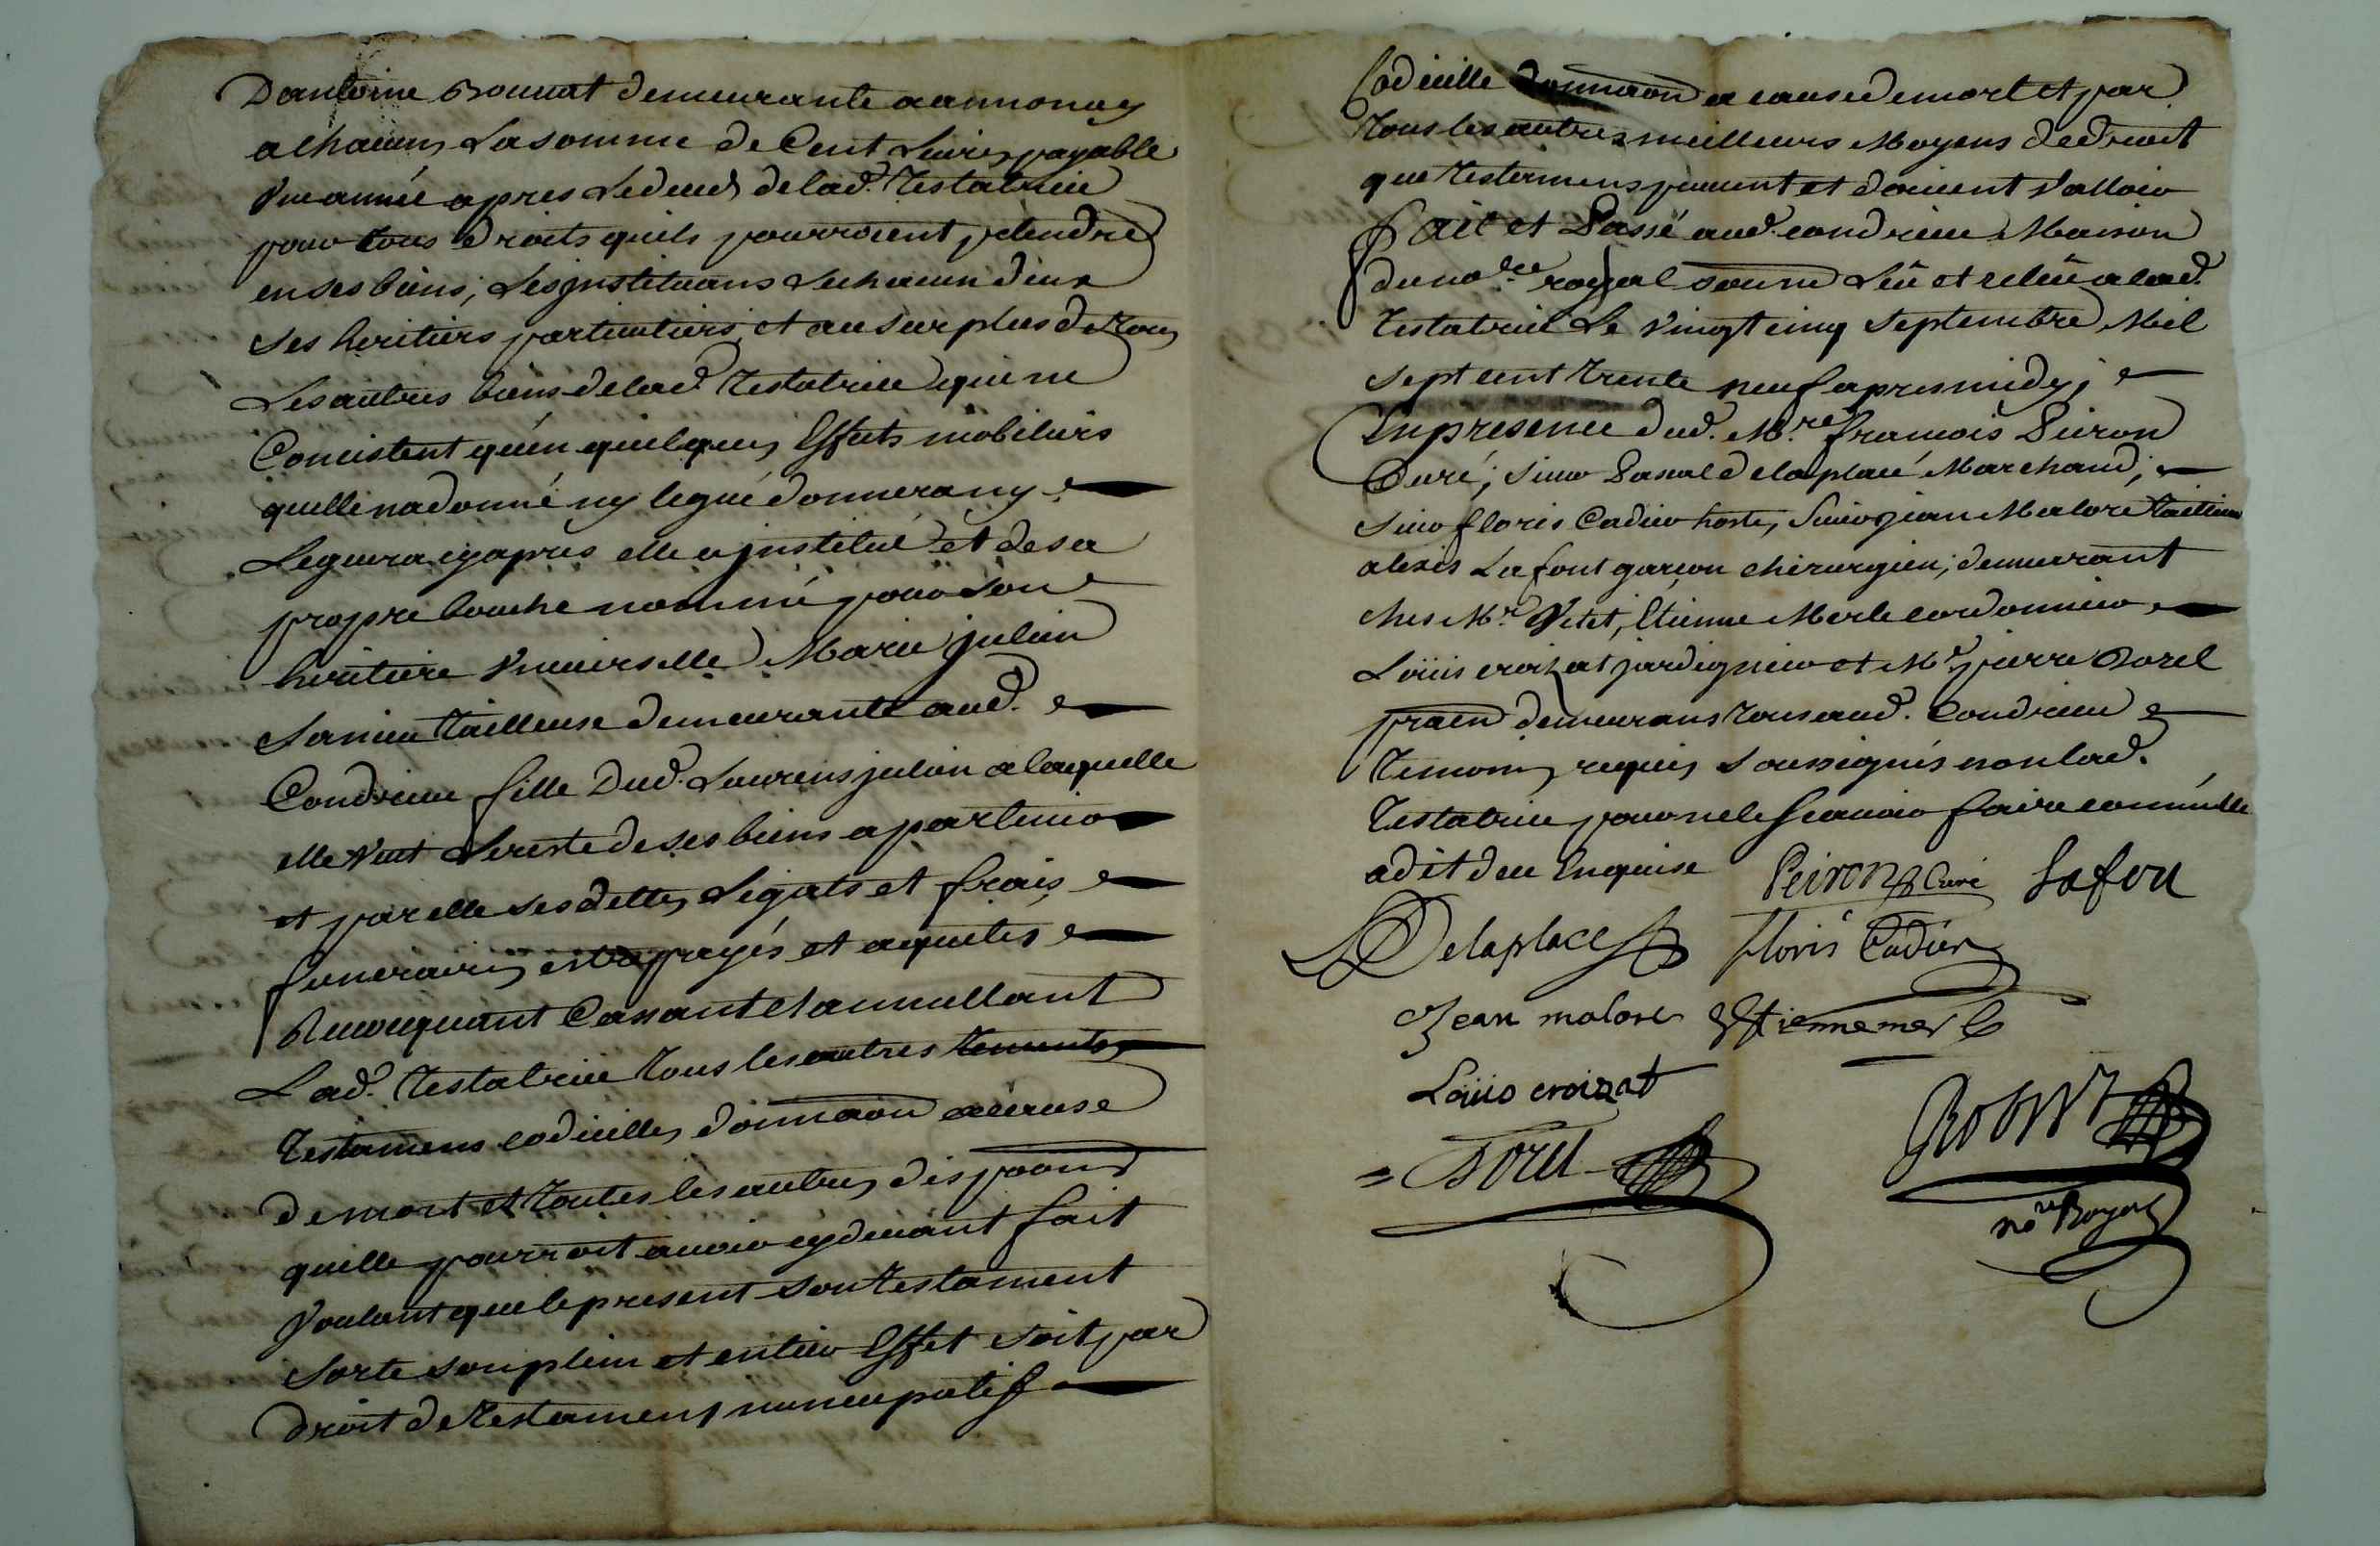 Dantoine Bonnat demeurante a annonay
a chacuns La somme de Cent Livres payable
Une année apres Le deces de lad. Testatrice
pour tous droits quils pourroient pretendre
en ses biens; Les instituans Le chacun deux
Ses heritiers particuliers, et au surplus de tous
Les autres biens de lad. Testatrice qui ne
Concistent qu'en quelques Effects mobiliers
quelle na donné ny legué donnera ny
Leguera cy apres elle a institué et de sa
propre bouche nommé pour son
heritiere Universelle Marie julien
Sa niece tailleuse demeurante aud.
Condrieu fille Dud. Laurens julien a laquelle
elle veut Le reste de ses biens apartenir
et par elle ses dettes Legats et frais
funeraires estre payés et aquités
Revocquant Cassant et annullant
Lad. Testatrice tous les autres
Testamens codicilles donnaon a cause
de mort et toutes les autres dispoons
quelle pourroit avoir cy devant fait
Voulant que le present son testament
Sorte son plein et entier Effet soit par
droit de testamens nuncupatif
Codicille donnaon a cause de mort et par
tous les autres meilleurs Moyens de droit
que testamens peuvent et doivent Valloir
Fait et Passé aud. condrieu Maison
du nore. royal soussne Leü et releü a lad.
testatrice Le vingt cinq Septembre Mil
sept cent trente neuf apres midy;
En presence dud. Mre. françois Peiron
Curé; sieur Pascal delaplace Marchand;
sieur floris Cadier hoste, sieur jean Malore tailleur
alexis Lafont garçon chirurgien; demeurant
ches Mr. Vetet, Etienne Merle cordonnier
Loüis croizat jardignier et Mr. pierre Dorel
praen demeurans tous aud. Condrieu
temoins requis soussignés non lad.
Testatrice pour ne le sçavoir faire comme elle
a dit deu Enquise Peiron Curé Lafon
Delaplace floris Cadier
Jean malore Estienne merle
Loüis croizat
Dorel Robert
nore Royal